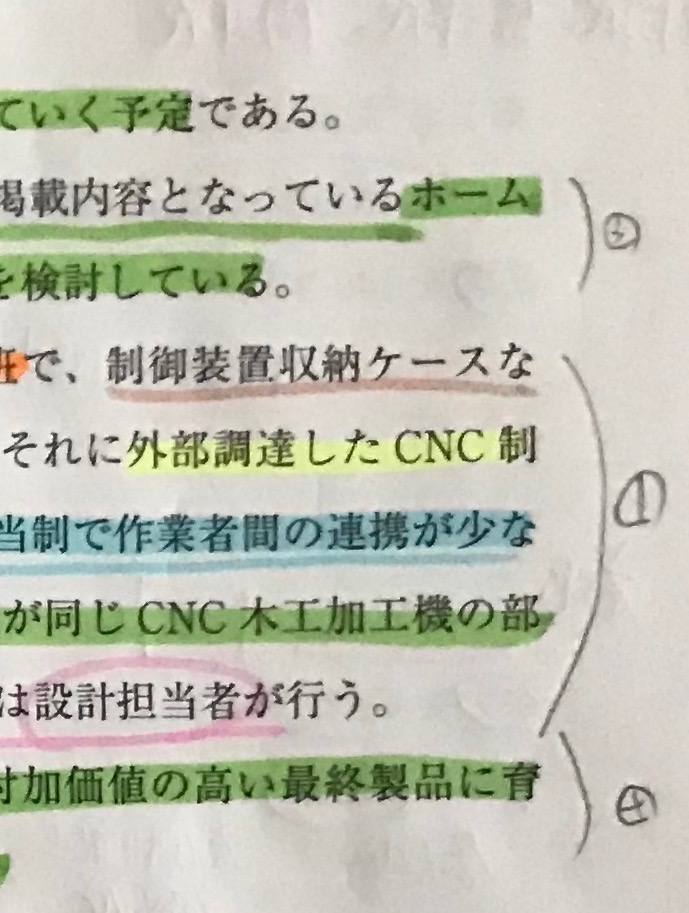 ていく予定である。
掲載内容となっているホーム
を検討している。
で、制御装置収納ケースな
それに外部調達した CNC 制
当制で作業者間の連携が少な
が同じ CNC 木工加工機の部
は設計担当者が行う。
付加価値の高い最終製品に育
①